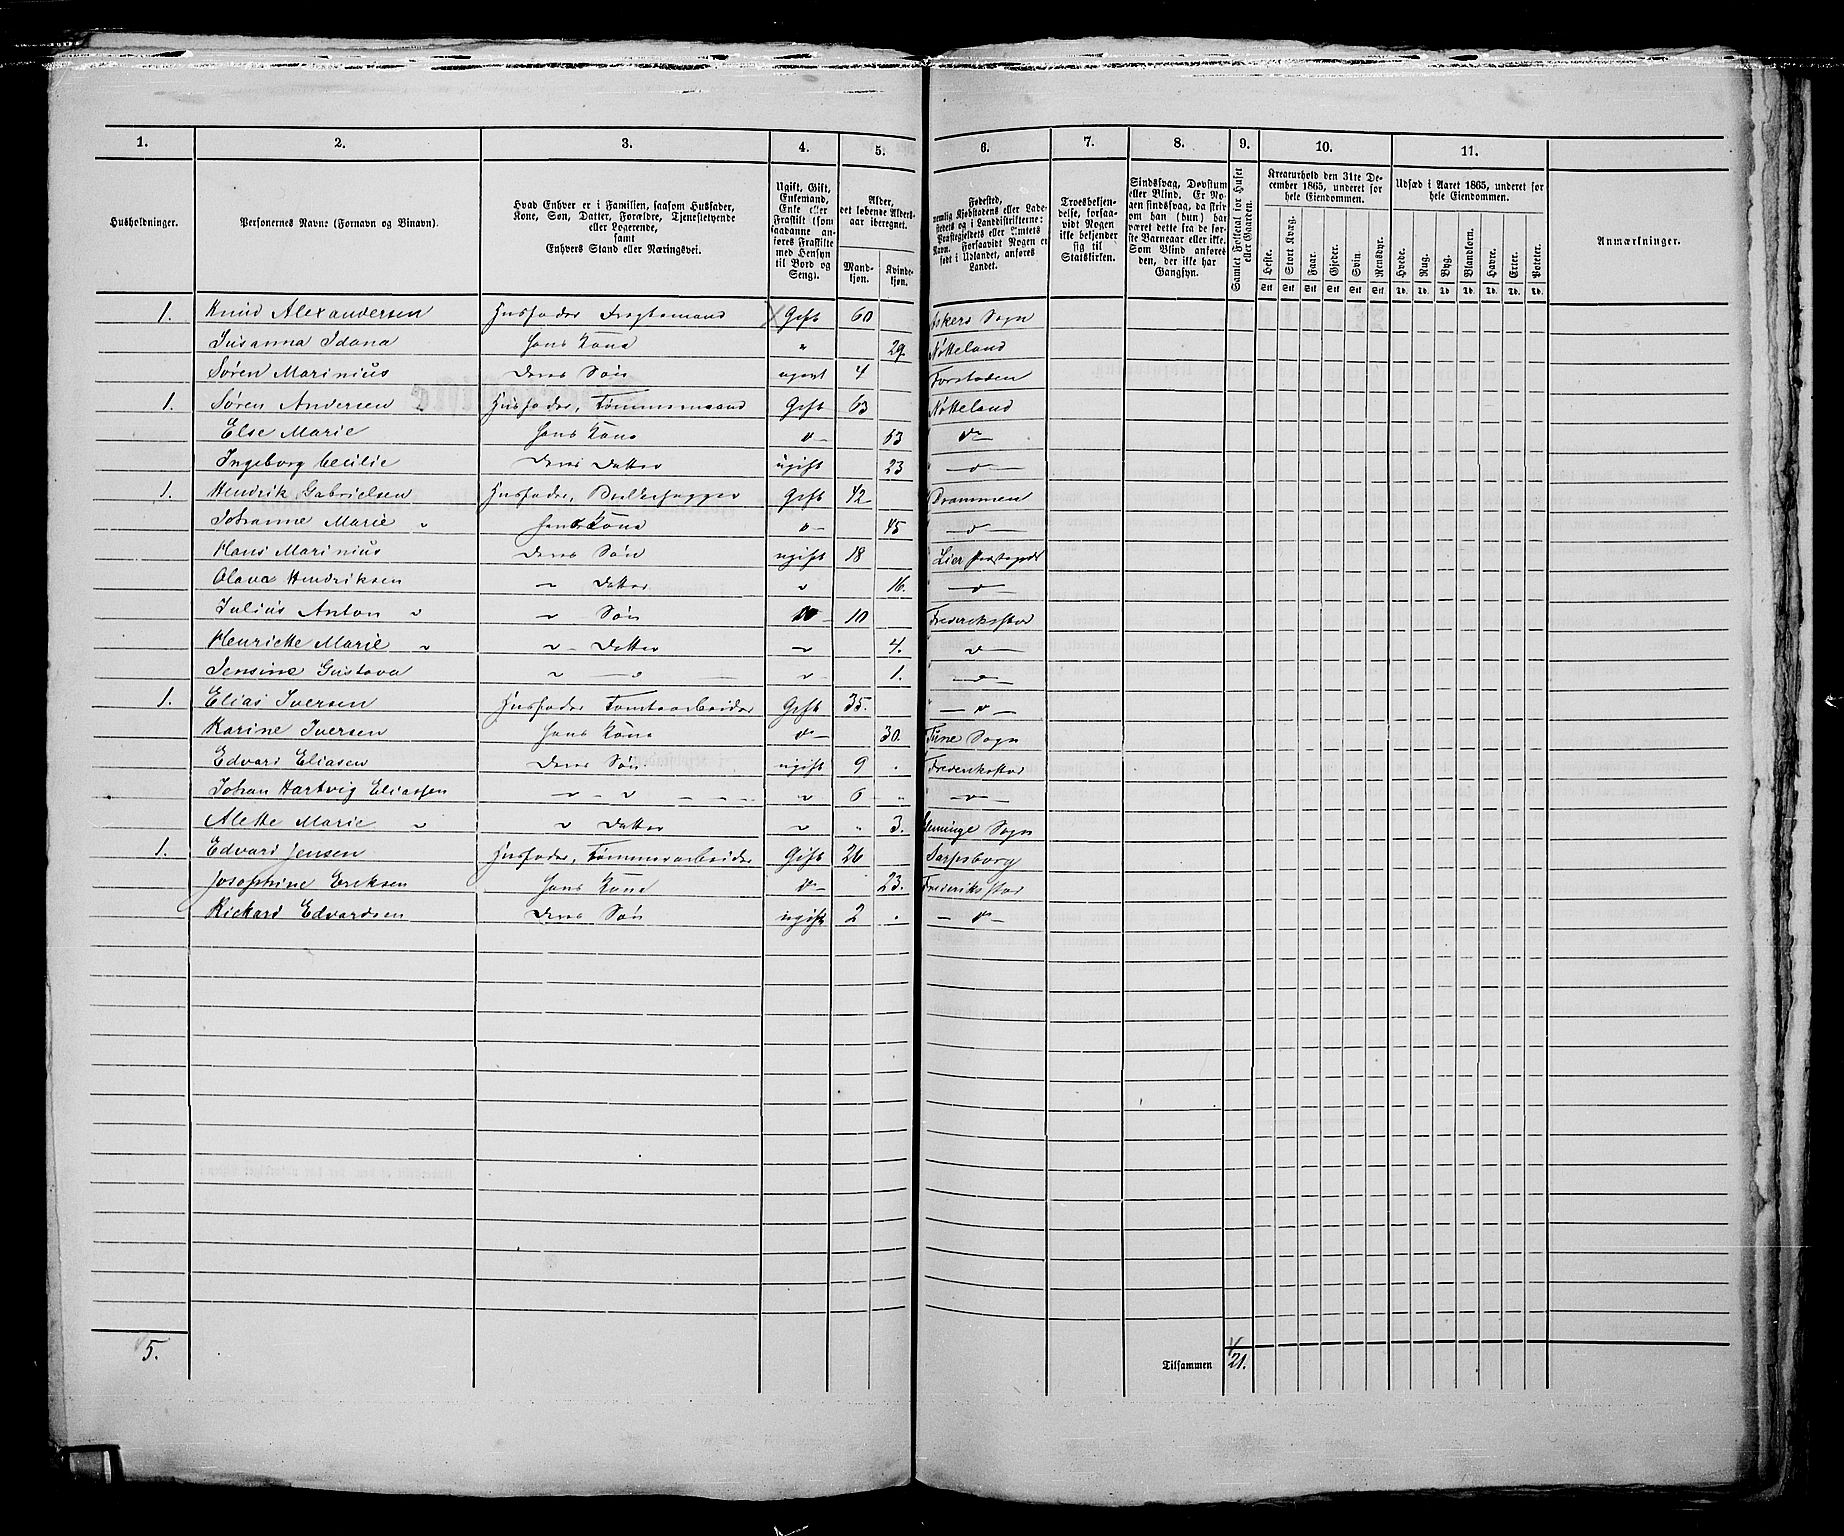 1. 2. 3. 4. 5. 6. 7. 8. 9. 10. 11.
Husholdninger.
Personernes Navne (Fornavn og Binavn).
Hvad Enhver er i Familien, saasom Husfader, Kone, Søn, Datter, Forældre, Tjenestetyende eller Logerende, samt Enhvers Stand eller Næringsvei.
Ugift, Gift, Enkemand, Enke eller Fraskilt (som saadanne anføres Fraskilte med Hensyn til Bord og Seng).
Alder, det løbende Aldersaar iberegnet.
Mandkjøn. Kvindekjøn.
Fødested, nemlig Kjøbstadens eller Ladestedets og i Landdistrikterne: Præstegjeldets eller Amtets Navn. Forsaavidt Nogen er født i Udlandet, anføres Landet.
Troesbekjendelse, forsaavidt Nogen ikke bekjender sig til Statskirken.
Sindssvag, Døvstum eller Blind. Er Nogen sindssvag, da skrives om han (hun) har været dette fra de første Barneaar eller ikke. Som Blind anføres den, der ikke har Gangsyn.
Samlet Folketal for Huset eller Gaarden.
Kreaturhold den 31te December 1865, underet for hele Eiendommen.
Heste. Stort Kvæg. Faar. Gjeder. Svin. Rensdyr.
Stk Stk Stk Stk Stk Stk
Udsæd i Aaret 1865, underet for hele Eiendommen.
Hvede. Rug. Byg. Blandkorn. Havre. Erter. Poteter.
Td. Td. Td. Td. Td. Td. Td.
Anmærkninger.
1. Knud Alexandersen Husfader Fragtemand Gift 60 Akers Sogn
Susanna Idana Hans Kone " 29. Nøtteland
Søren Marinius Deres Søn ugivt 4 Forstaden
1. Søren Andersen Husfader, Tømmermand Gift 63 Nøtteland
Else Marie Hans Kone " 53 do
Ingeborg Cecilie Deres Datter ugift 23 do
1. Hendrik Gabrielsen Husfader, Gift 42 Drammen
Johanne Marie " Hans Kone " 45 do
Hans Marinius Deres Søn ugift 18 Lier
Olava Hendriksen " Datter " 16. do
Julius Anton " " Søn " 10 Frederikstad
Henriette Marie " " Datter " 4. do
Jensine Gustava " " " 1. do
1. Elias Iversen Husfader Tomtearbeider Gift 35. do
Karine Iversen Hans Kone do 30. Tune Sogn
Edvard Eliasen Deres Søn ugift 9 Frederikstad
Johan Hartvig Eliassen " " " 6 " do
Alette Marie " " Datter " " 3. Glemminge Sogn
1. Edvard Jensen Husfader, Tømmerarbeider Gift 26 Sarpsborg
Josephine Eriksen Hans Kone do 23. Frederikstad
Rickard Edvardsen Deres Søn ugift 2 do
5.
Tilsammen 21.